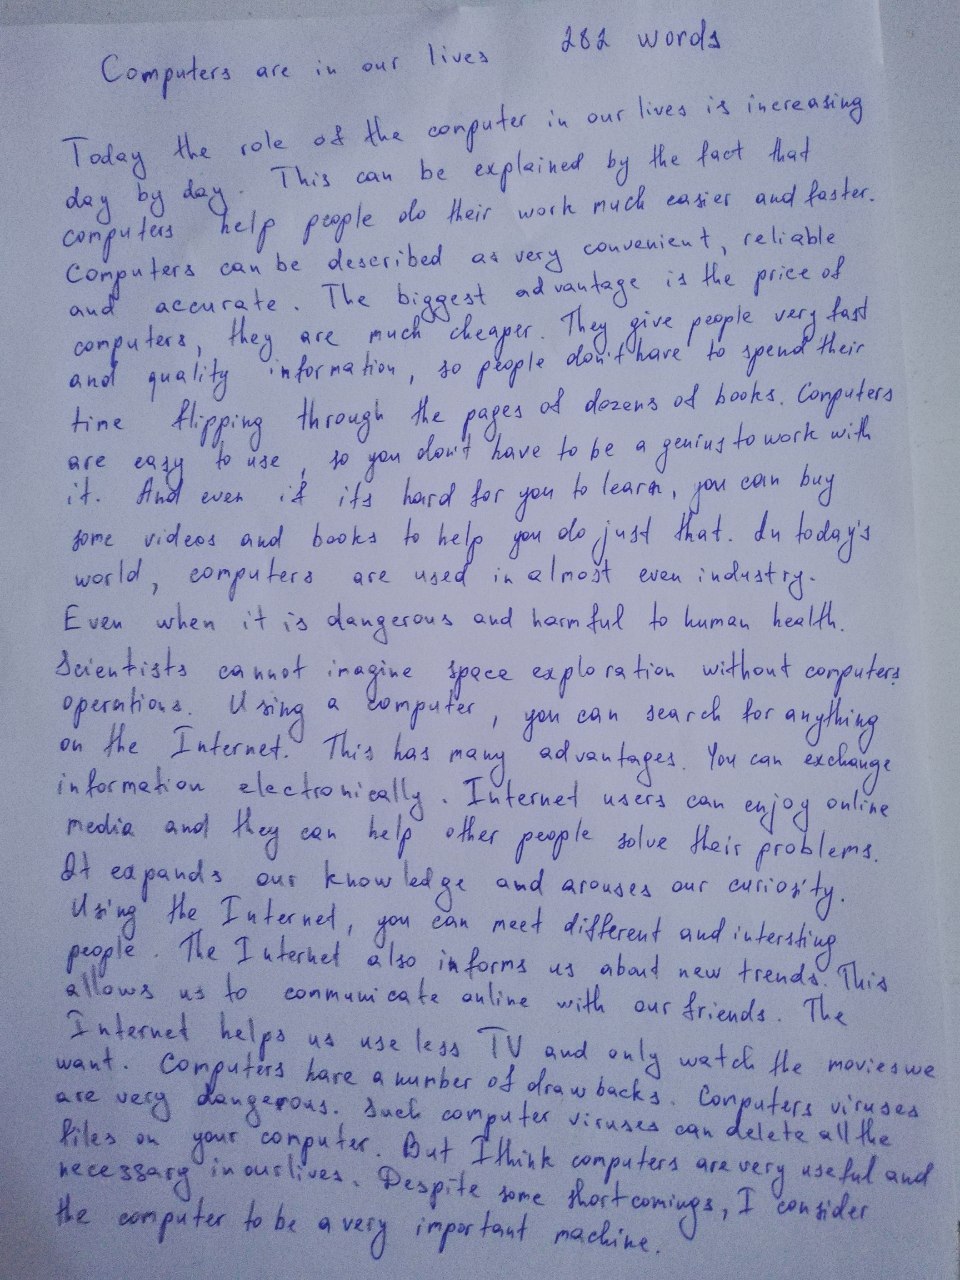 Computers are in our lives 282 words
Today the role of the computer in our lives is increasing
day by day. This can be explained by the fact that
computers help people do their work much easier and faster.
Computers can be described as very convenient, reliable
and accurate. The biggest advantage is the price of
computers, they are much cheaper. They give people very fast
and quality information, so people don't have to spend their
time flipping through the pages of dozens of books. Computers
are easy to use, so you don't have to be a genius to work with
it. And even if its hard for you to learn, you can buy
some videos and books to help you do just that. In today's
world, computers are used in almost even industry.
Even when it is dangerous and harmful to human health.
Scientists cannot imagine space exploration without computers
operations. Using a computer, you can search for anything
on the Internet. This has many advantages. You can exchange
information electronically. Internet users can enjoy online
media and they can help other people solve their problems.
It expands our knowledge and arouses our curiosity.
Using the Internet, you can meet different and intersting
people. The Internet also informs us about new trends. This
allows us to communicate online with our friends. The
Internet helps us use less TV and only watch the movies we
want. Computers have a number of drawbacks. Computers viruses
are very dangerous. Such computer viruses can delete all the
files on your computer. But I think computers are very useful and
necessary in our lives. Despite some shortcomings, I consider
the computer to be a very important machine.